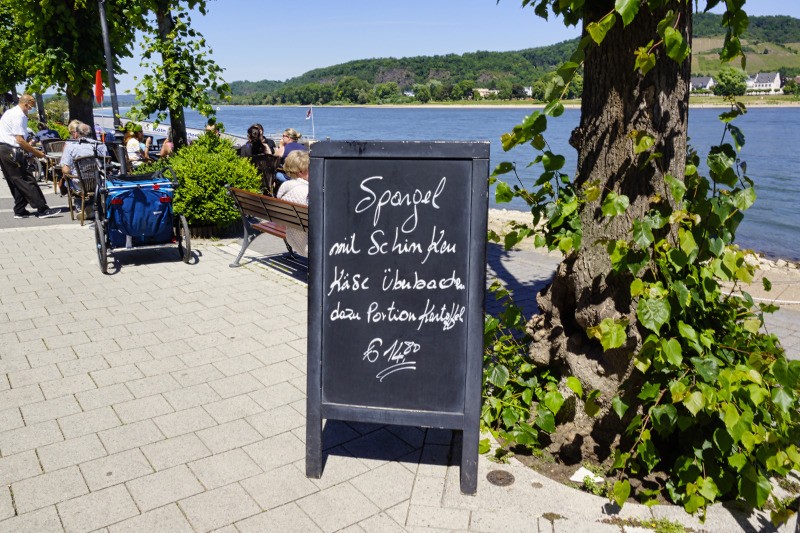 Spargel
mit Schinken
Käse Überbacken
dazu Portion Kartoffel
€ 14,80